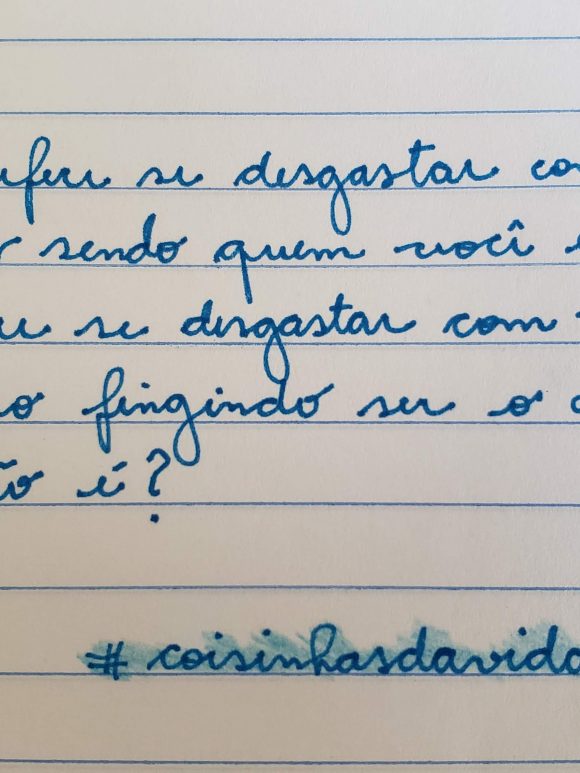 se desgastar
sendo quem você
se desgastar com
fingindo ser o
é?
#coisinhasdavida